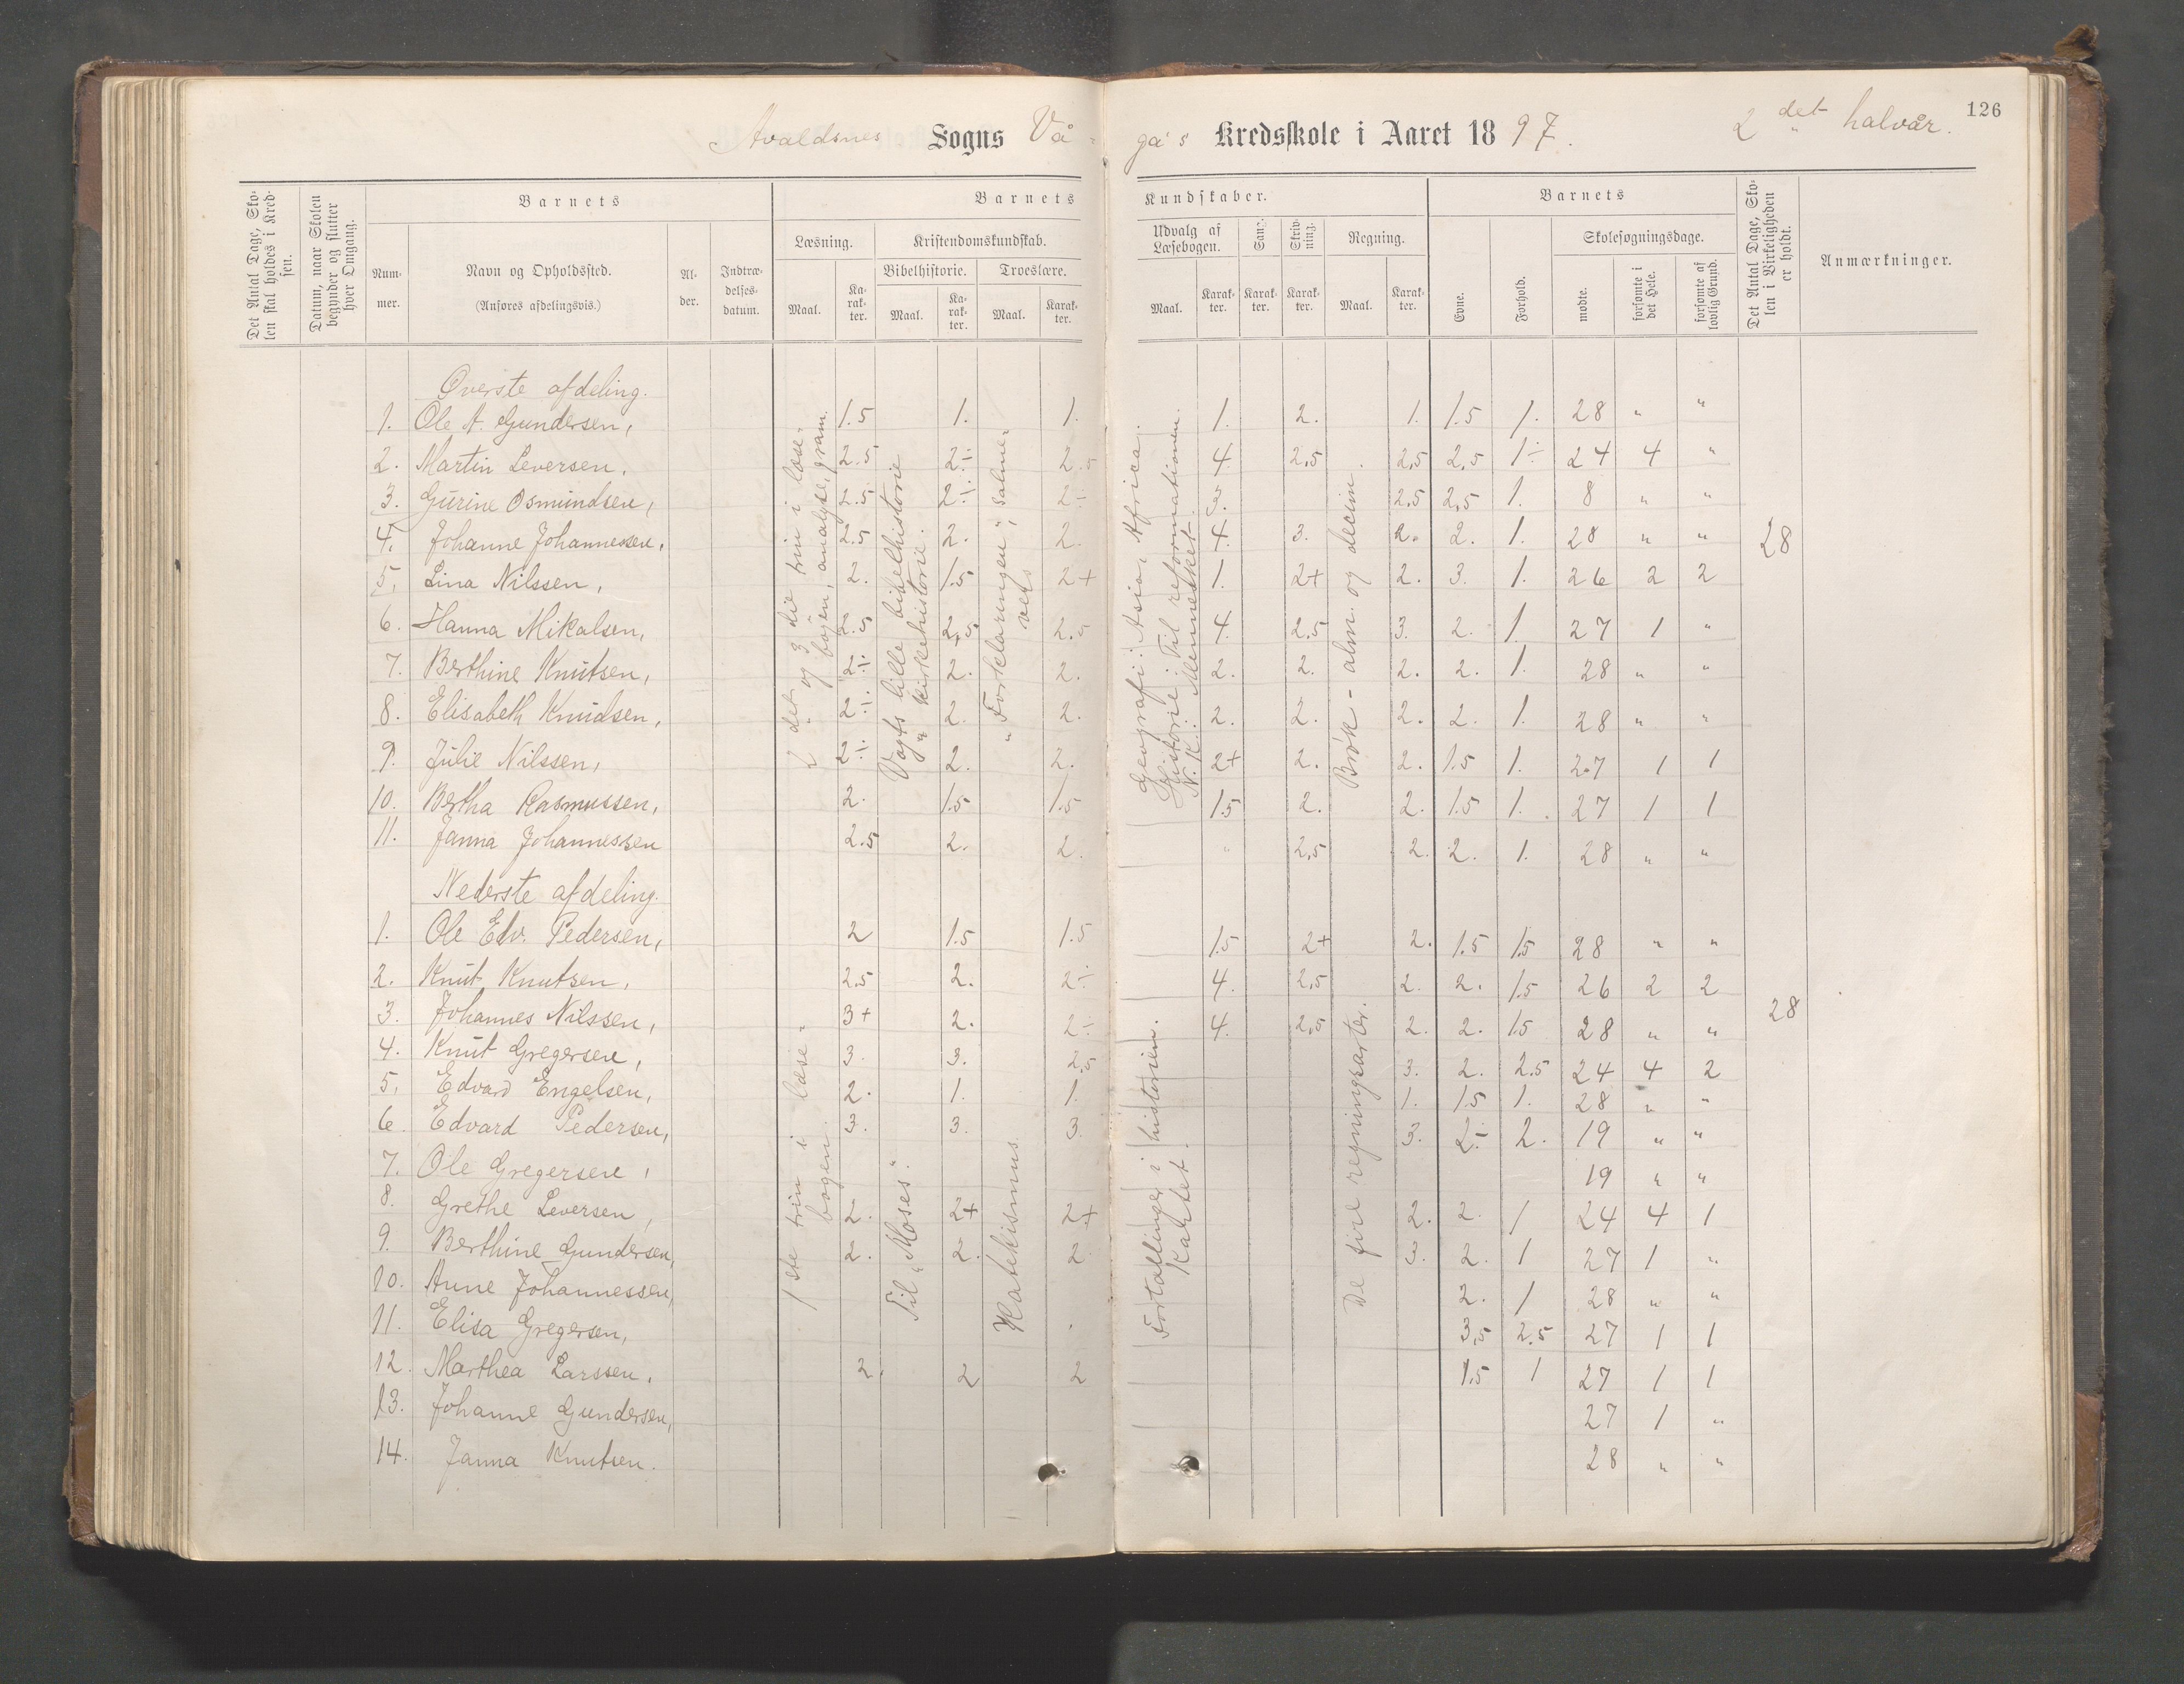 Avaldsnes Sogns Vå-
gå's Kredsskole i Aaret 1897. 2det halvår. 126
Det Antal Dage, Sko-
len skal holdes i Kred-
sen.
Datum, naar Skolen
begynder og slutter
hver Omgang.
Barnets
Num-
mer.
Navn og Opholdssted.
(Anføres afdelingsvis.)
Al-
der.
Indtræ-
delses-
datum.
Barnets
Læsning.
Maal.
Ka-
rak-
ter.
Kristendomskundskab.
Bibelhistorie.
Maal.
Ka-
rak-
ter.
Troeslære.
Maal.
Karak-
ter.
Kundskaber.
Udvalg af
Læsebogen.
Maal.
Karak-
ter.
Sang.
Karak-
ter.
Skriv-
ning.
Karak-
ter.
Regning.
Maal.
Karak-
ter.
Barnets
Evne.
Forhold.
Skolesøgningsdage.
mødte.
forsømte i
det Hele.
forsømte af
lovlig Grund.
Det Antal Dage, Sko-
len i Virkeligheden
er holdt.
Anmærkninger.
Øverste afdeling.
1. Ole A. Gundersen, 1.5 1. 1. 1. 2. 1. 1.5 1. 28 " "
2. Martin Leversen. 2.5 2÷ 2.5 4. 2,5 2,5 2,5 1÷ 24 4 "
3. Gurine Osmundsen, 2.5 2÷ 2÷ 3. 2,5 2,5 1. 8 " "
4. Johanne Johannessen, 2.5 2. 2. 4. 3. 2. 2. 1. 28 " "
5. Lina Nilssen, 2. 1.5 2+ 1. 2+ 2. 3. 1. 26 2 2
6. Hanna Mikalsen, 2.5 2,5 2.5 4. 2.5 3. 2. 1. 27 1 "
7. Berthine Knutsen, 2÷ 2. 2. 2. 2. 2. 2. 1. 28 " "
8. Elisabeth Knudsen, 2÷ 2. 2. 2. 2. 2. 2. 1. 28 " "
9. Julie Nilssen, 2÷ 2. 2. 2+ 2. 2. 1.5 1. 27 1 1
10. Bertha Rasmussen, 2. 1.5 1.5 1.5 2. 2. 1.5 1. 27 1 1
11. Janna Johannessen 2.5 2. 2. " 2,5 2. 2. 1. 28 " "
28
2det og 3die trin i læse-
bogen, analyse, gram.
Vogts lille bibelhistorie
" kirkehistorie.
"Forklaringen", salme-
vers
Geografi: Asia, Africa.
Historie: Til reformationen.
N. K.: Mennesket.
Brøk- alm. og decim.
Nederste afdeling.
1. Ole Edv. Pedersen, 2 1.5 1.5 1.5 2+ 2. 1.5 1.5 28 " "
2. Knut Knutsen, 2.5 2. 2÷ 4. 2,5 2. 2. 1.5 26 2 2
3. Johannes Nilssen, 3+ 2. 2÷ 4. 2,5 2. 2. 1.5 28 " "
4. Knut Gregersen, 3. 3. 2,5 3. 2. 2.5 24 4 2
5. Edvard Engelsen, 2. 1. 1. 1. 1.5 1. 28 " "
6. Edvard Pedersen, 3. 3. 3. 3. 2÷ 2. 19 " "
7. Ole Gregersen, 19 " "
8. Grethe Leversen, 2. 2+ 2+ 2. 2. 1 24 4 1
9. Berthine Gundersen, 2. 2. 2 3. 2. 1 27 1 "
10. Anne Johannessen, 2. 1 28 " "
11. Elisa Gregersen, 3,5 2.5 27 1 1
12. Marthea Larssen. 2. 2 2 1.5 1 27 1 1
13. Johanne Gundersen, 27 1 "
14. Janna Knutsen. 28 " "
28
1ste trin i læse-
bogen.
Til "Moses".
Katekismus
Fortællinger i historien.
Kartet.
De fire regningsarter.